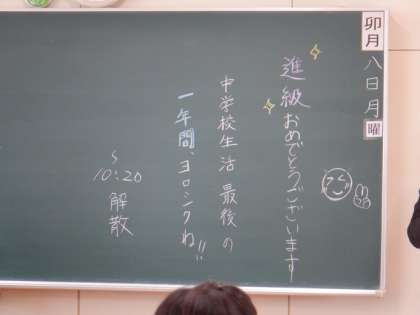 卯月八日月曜
進級おめでとうございます
中学校生活最後の
一年間、ヨロシクね!!
〜10:20解散